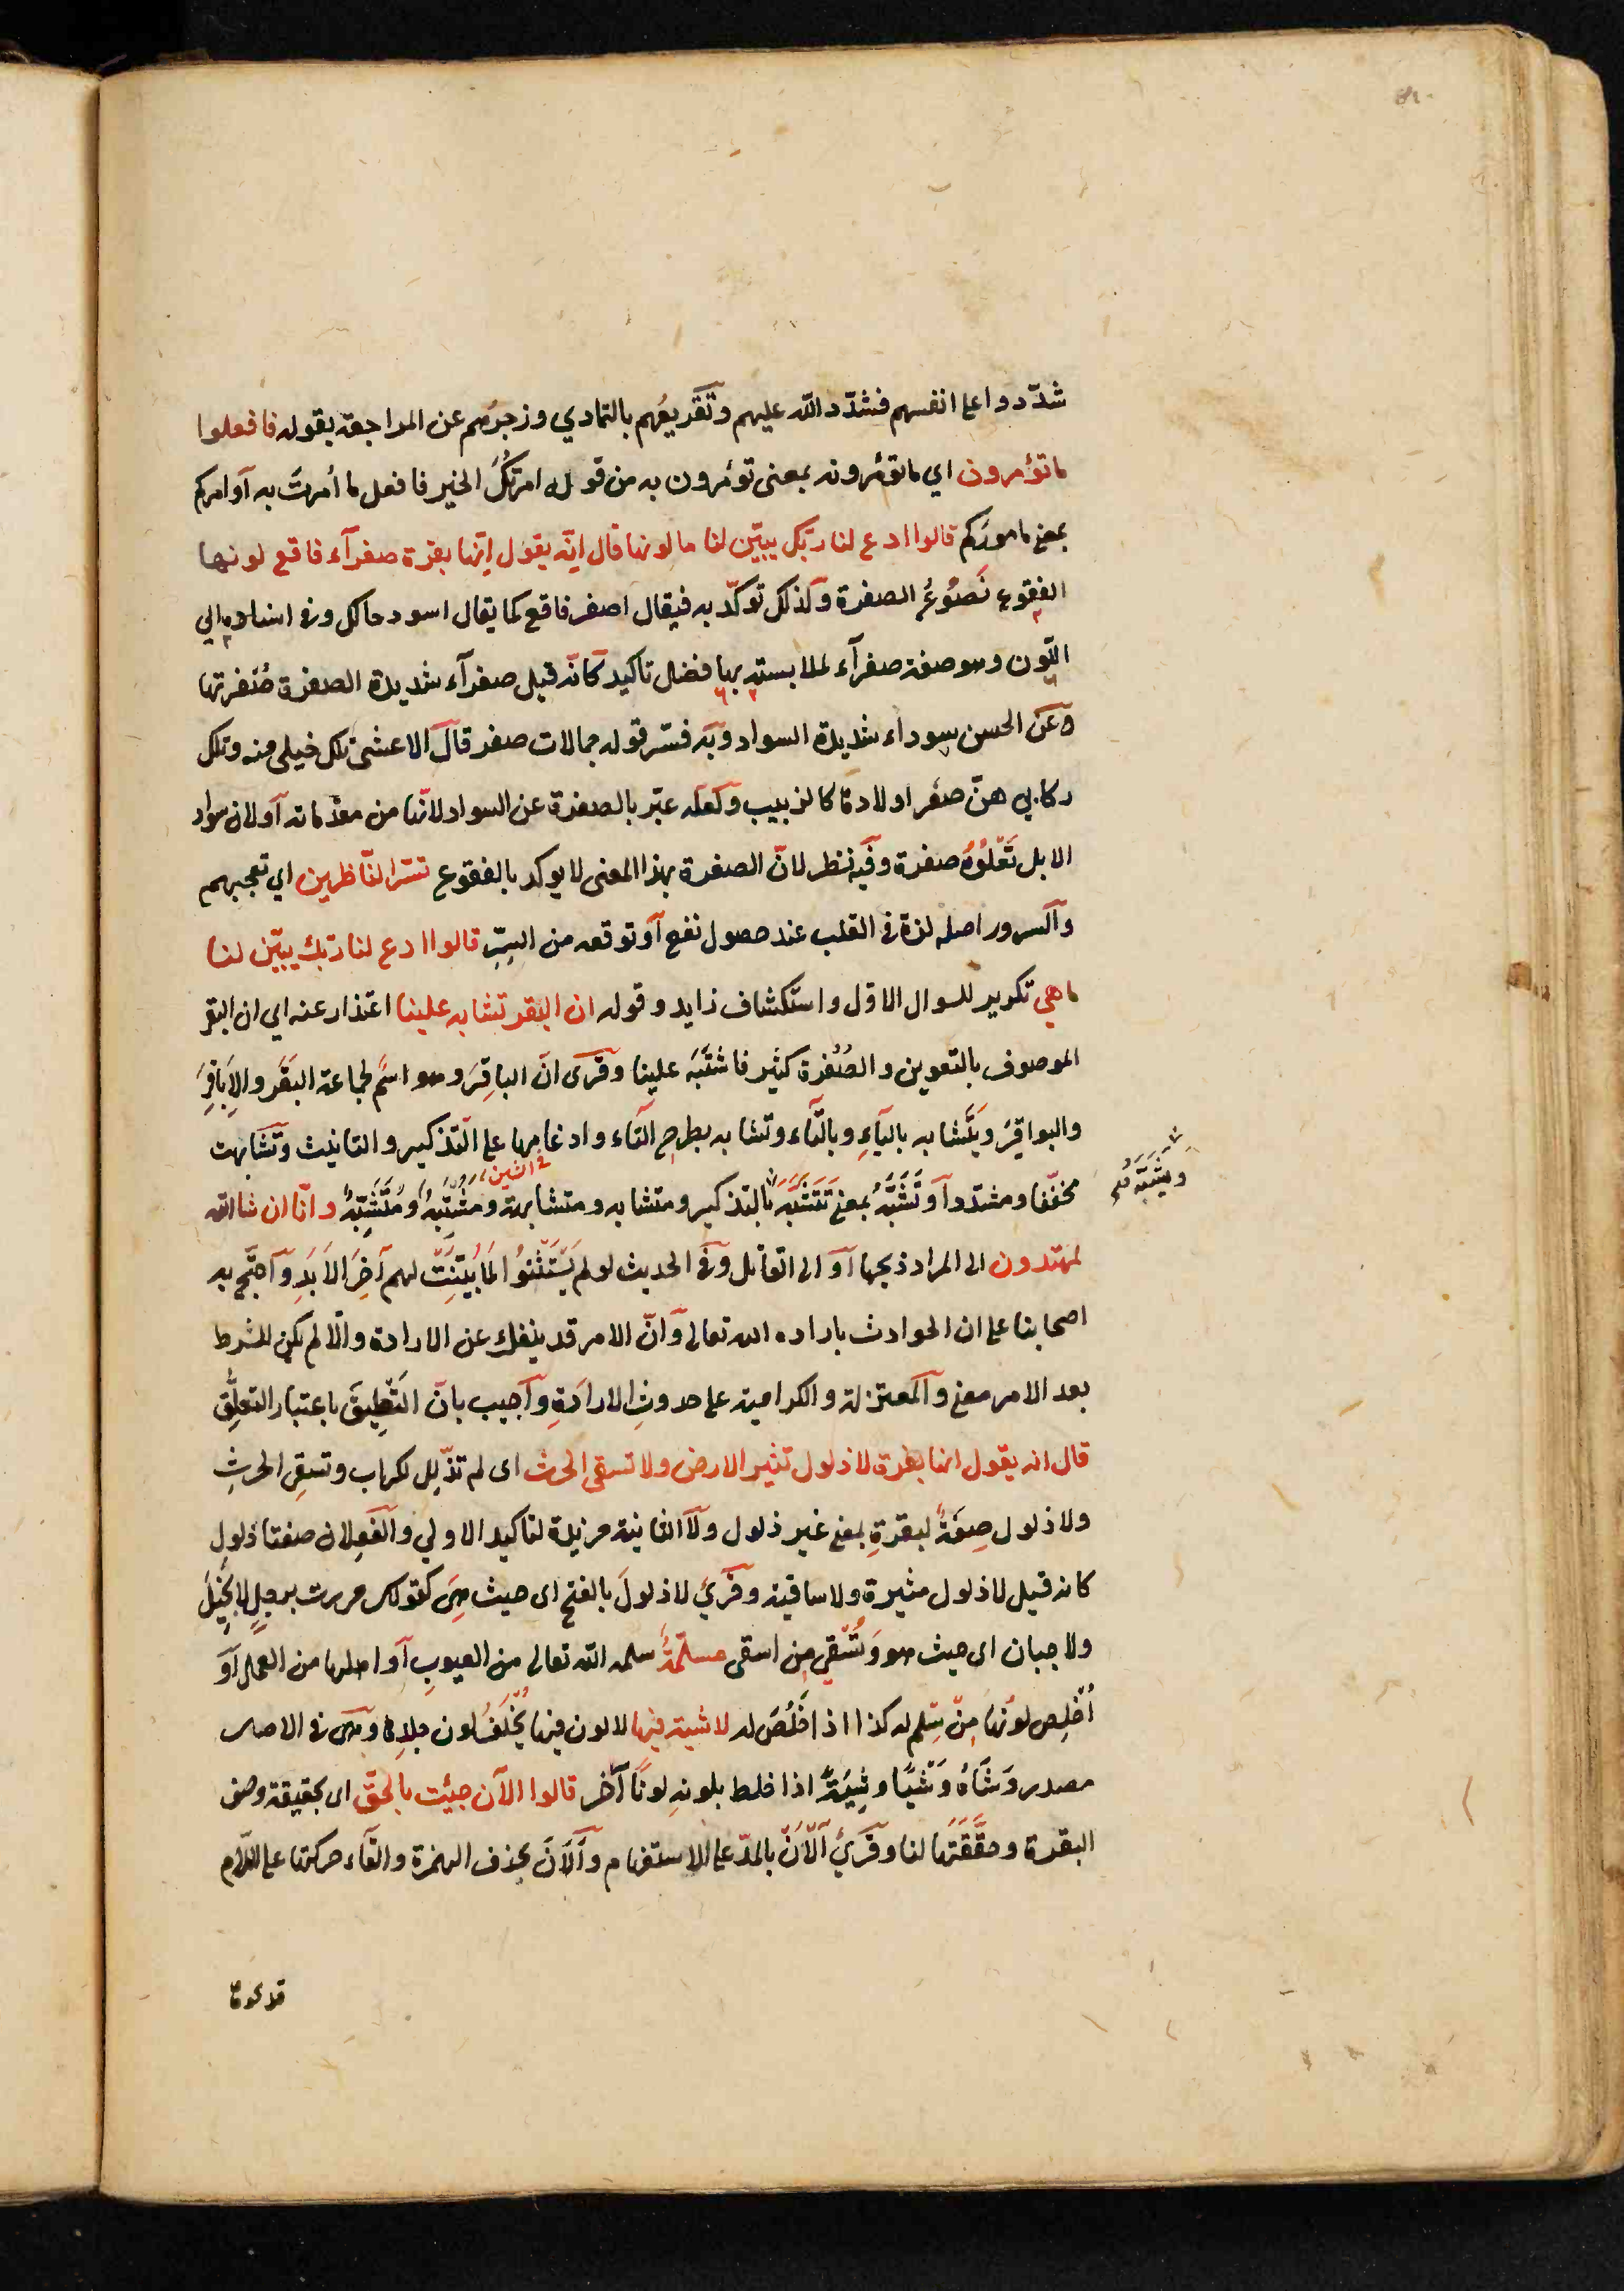 شدّدوا على انفسهم فشدّد الله عليهم وتقريعُهم بالتمادي وزجرُهم عن المراجعة بقوله فافعلوا
ما تؤمرون اي ما تؤمرونه بمعنى تؤمرون به من قوله امرتُكَ الخير فافعل ما اُمرتَ به او امركم
بمعنى ماموركم قالوا ادع لنا ربّك يبيّن لنا ما لونها قال انّه يقول إنّها بقرة صفرآء فاقع لونها
الفقوع نَصُوعُ الصفرة وكذلك توكّد به فيقال اصفر فاقع كما يقال اسود حالك وفى اسناده الي
اللّون وهو صفة صفرآء لملابسته بها فضل تاكيد كانّه قيل صفرآء شديدة الصفرة صُفرتها
وعن الحسن سوداء شديدة السواد وبه فسّر قوله جمالات صفر قال الاعشى تلك خيلى منه وتلك
ركابي هنّ صفر اولادها كالزبيب ولعله عبّر بالصفرة عن السواد لانّها من مقدماته او لان سواد
الابل تَعْلُوُهُ صفرة وفيه نظر لانّ الصفرة بهذا المعنى لا يوكد بالفقوع تسّر النّاظرين اي تعجبهم
والسرور اصله لذة فى القلب عند حصول نفع او توقعه من السِرّ قالوا ادع لنا ربّك يبيّن لنا
ما هي تكرير للسوال الاوّل واستكشاف زايد وقوله ان البقر تشابه علينا اعتذار عنه اى ان البقر
الموصوف بالتعوين والصُفرة كثير فاشتَبَهَ علينا وقرى انّ الباقِرَ وهو اسم لجماعة البَقَر والاباقِرَ
والبواقِرَ ويتشابه باليآءِ وبالتّاء وتشابه بطرحِ التاء وادغامها على التذكير والتانيث وتَشَابهت
مخفّفا ومشدّداً وتَشَبَّهُ بمعنى تَتَشَبَّهُ بالتذكير ومتشابه ومتشابهة ومشتبهُ ومُتَشَبِّهٌ وانّا ان شاالله
فى الشين
ويتشبّه صح
لمهتدون الى المراد ذبحها او الى القاتل وفى الحديث لو لم يَسْتَثْنُوا لما بُيّنَتْ لهم آخِرَ الاَبَدِ واحتجّ به
اصحابنا على ان الحوادث باراده الله تعالى وانّ الامر قد ينفك عن الارادة والّا لم يكن للشرط
بعد الامر معنى والمعتزلة والكرامية على حدوثِ الارادَةِ واجيب بانّ التعليقَ باعتبار التعلّق
قال انه يقول انها بقرة لا ذلول تثير الارض ولا تسقى الحرث اى لم تذلل لكراب وتسقى الحرثِ
ولا ذلول صِفَةٌ لبقرةٍ بمعنى غير ذلول ولا الثانية مزيدة لتاكيد الاولي والفعلان صفتا ذلول
كانه قيل لا ذلول مثيرة ولا ساقية وقُرئَ لا ذلولَ بالفتح اى حيث هِىَ كقولك مررت برجلٍ لا بخيلَ
ولا جبان اى حيث هو وَتُسْقِي مِن اسقى مسلّمةٌ سلمه الله تعالى من العيوبِ او اهلها من العمل او
اُخْلِصَ لَونُها مِنْ سَلِمَ له كذا اذا خَلُصَ له لا شية فيها لا لون فيها يُخَلفُ لون جلدِها وهى فى الاصل
مصدر وَشَاهُ وَشْيًا وشِيَةً اذا خلط بلونِهِ لونًا آخر قالوا الآن جِئت بالحقّ اى بحقيقة وصف
البقرة وحقّقتَها لنا وقرئَ آلآنَ بالمدّ على الاستفهام والَانَ بحذف الهمزة والقاء حركتها على اللّام